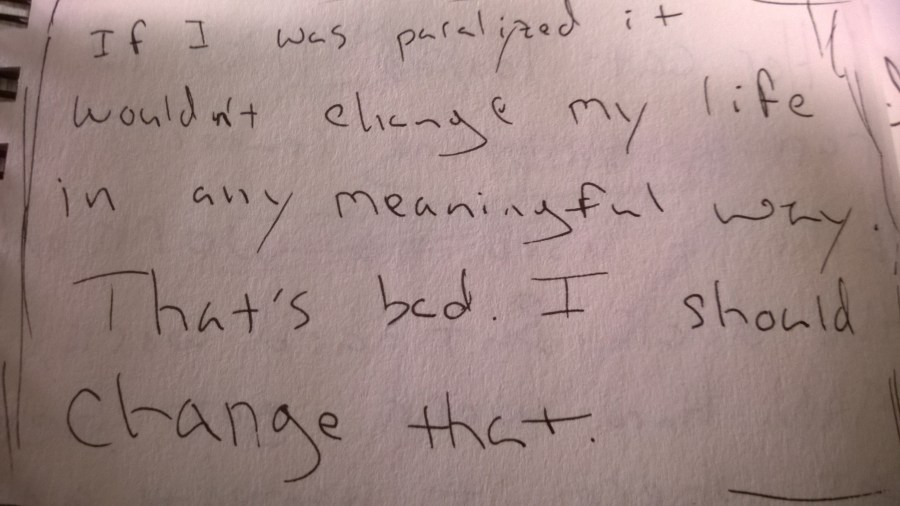 If I was paralized it
wouldn't change my life
in any meaningful way.
That's bad. I should
change that.